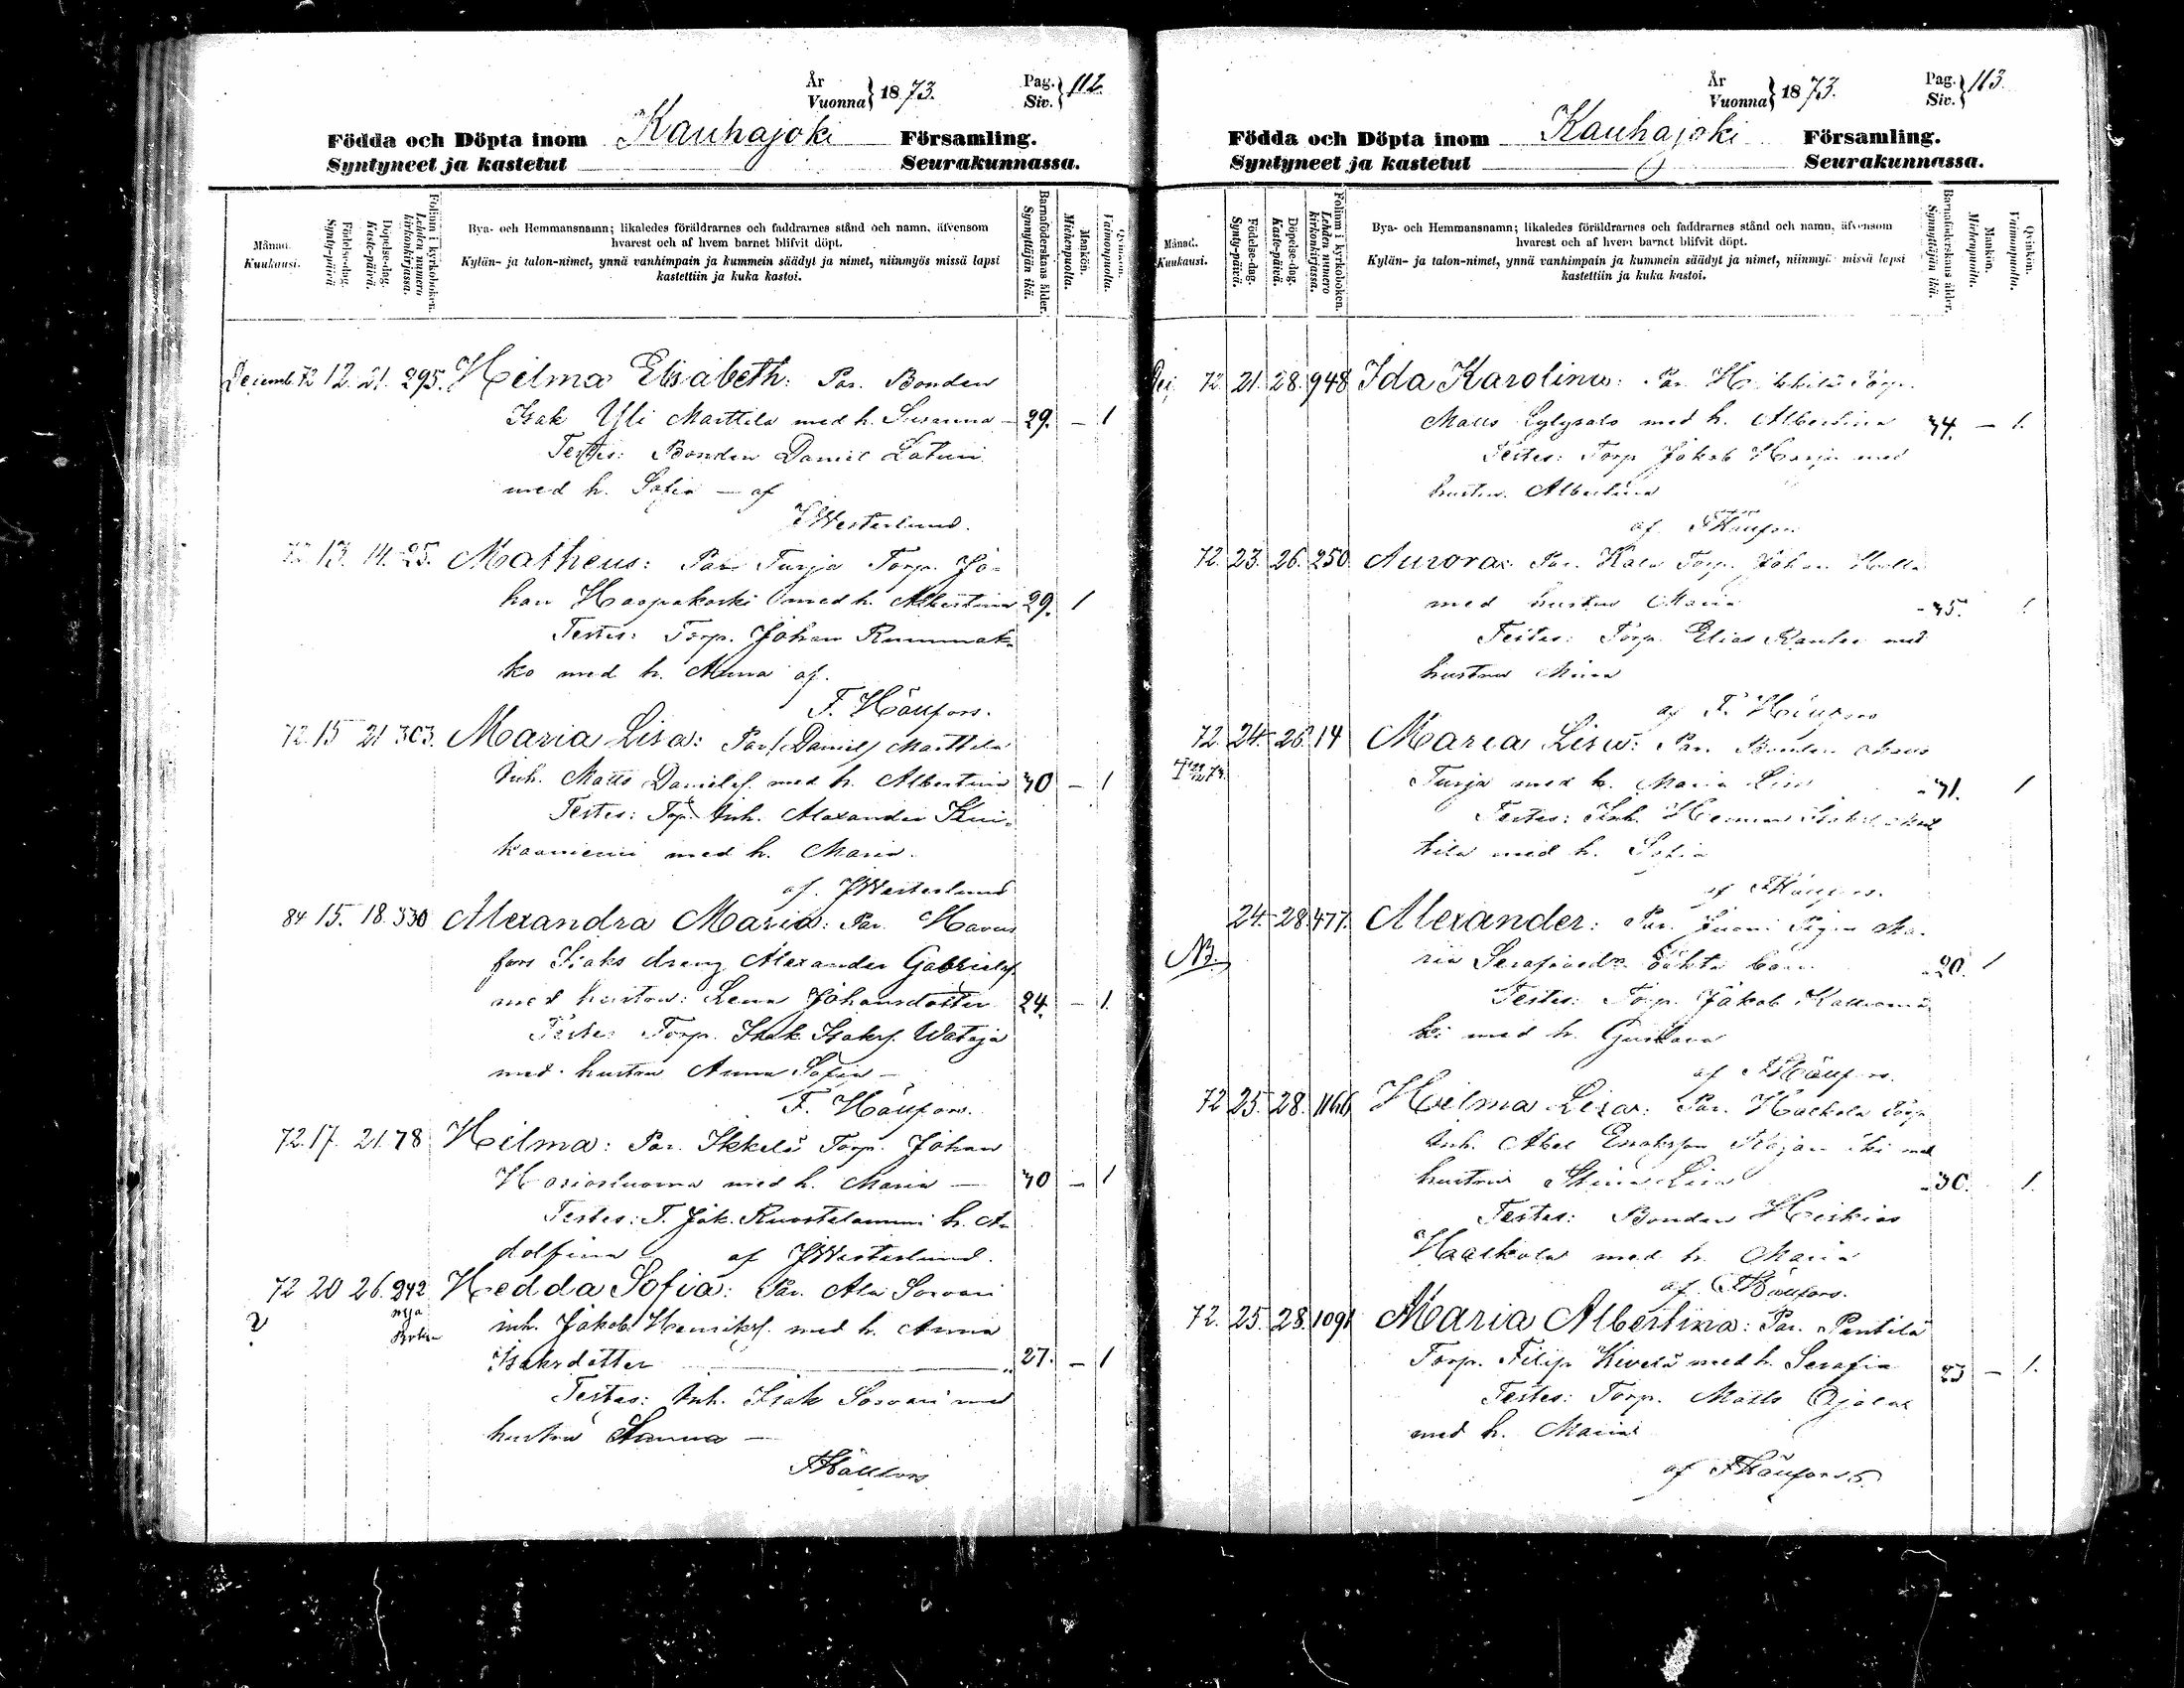 År
Vuonna } 1873.
Pag.
Siv. } 112.
Födda och Döpta inom Kauhajoki Församling.
Syntyneet ja kastetut Seurakunnassa.
Månad.
Kuukausi.
Födelse-dag.
Synty-päivä
Döpelse-dag.
Kaste-päivä.
Folium i kyrkoboken.
Lehden numero
kirkonkirjassa.
Bya- och Hemmansnamn; likaledes föräldrarnes och faddrarnes stånd och namn, äfvensom
hvarest och af hvem barnet blifvit döpt.
Kylän- ja talon-nimet, ynnä vanhimpain ja kummein säädyt ja nimet, niinmyös missä lapsi
kastettiin ja kuka kastoi.
Barnaföderskans ålder.
Synnyttäjän ikä.
Mankön.
Miehenpuolta.
Qvinkön.
Vaimonpuolta.
Decemb. 72 12. 21. 295. Hilma Elisabeth: Par. Bonden
Isak Yli Marttila med h. Susanna - 29. - 1
Testes: Bonden Daniel Laturi
med h. Sofia - af
Westerlund.
72 13. 14. 25. Matheus: Par. Turja Torp. Jo-
han Haapakoski med h. Albertina 29. 1
Testes: Torp. Johan Rummak-
ko med h. Anna af.
F. Häufors.
72. 15 21 303. Maria Lisa: Par. Daniel Marttila
Inh. Matts Danielss. med h. Albertina 40 - 1
Testes: Inh. Alexander
med h. Maria.
af. JWesterlund
84 15. 18. 330 Alexandra Maria: Par. Havus
fors Isaks dräng Alexander Gabrielss.
med hustru: Lena Johansdotter 24. - 1.
Testes Torp. Isak Isakss. Wataja
med hustru Anna Sofia -
F. Häufors.
72. 17. 21. 78 Hilma: Par. Ikkelä Torp. Johan
med h. Maria - 40 - 1
Testes: T. Jak. Ruostelammi h. A-
dolfina af JWesterlund.
72 20 26. 242 Hedda Sofia: Par. Ala Sorvari
? nya
boken
inh. Jakob Henrikss. med h. Anna
Isaksdotter 27. - 1
Testes: Inh. Isak Sorvari med
hustru Sanna -
FHäufors.
År
Vuonna } 1873.
Pag.
Siv. } 113.
Födda och Döpta inom Kauhajoki Församling.
Syntyneet ja kastetut Seurakunnassa.
Månad.
Kuukausi.
Födelse-dag.
Synty-päivä.
Döpelse-dag.
Kaste-päivä.
Folium i kyrkoboken.
Lehden numero
kirkonkirjassa.
Bya- och Hemmansnamn; likaledes föräldrarnes och faddrarnes stånd och namn, äfvensom
hvarest och af hvem barnet blifvit döpt.
Kylän- ja talon-nimet, ynnä vanhimpain ja kummein säädyt ja nimet, niinmyös missä lapsi
kastettiin ja kuka kastoi.
Barnaföderskans ålder.
Synnyttäjän ikä.
Mankön.
Miehenpuolta.
Qvinkön.
Vaimonpuolta.
72. 21. 28. 948 Ida Karolina: Par. Torp.
Matts Lylysalo med h. Albertina 34. - 1.
Testes: Torp Jakob Harja med
hustru Albertina
af FHäufors
72. 23. 26. 250 Aurora: Par. Torp. Johan
med hustru Maria 45. 1
Testes: Torp. Elias Ranta med
hustru
af F. Häufors
72. 24. 26. 14 Maria Lisa: Par. Bonden
Turja med h. Maria Lisa 41. 1
Testes: Inh. Herman
med h. Sofia
af FHäufors.
24. 28. 477. Alexander: Par. Pigan Ma-
NB.
ria oäkta barn 20. 1
Testes: Torp. Jakob
ki med h. Gustava
af FHäufors.
72 25. 28. 1166 Hilma Lisa: Par. Torp
Inh. Abel med
hustru Stina Lisa 30. 1.
Testes: Bonden Heikias
med h. Maria
af. FHäufors.
72. 25. 28. 1091 Maria Albertina: Par. Pentilä
Torp. Filip Kivelä med h. Serafia 23 - 1.
Testes: Torp. Matts Ojala
med h. Maria
af FHäufors